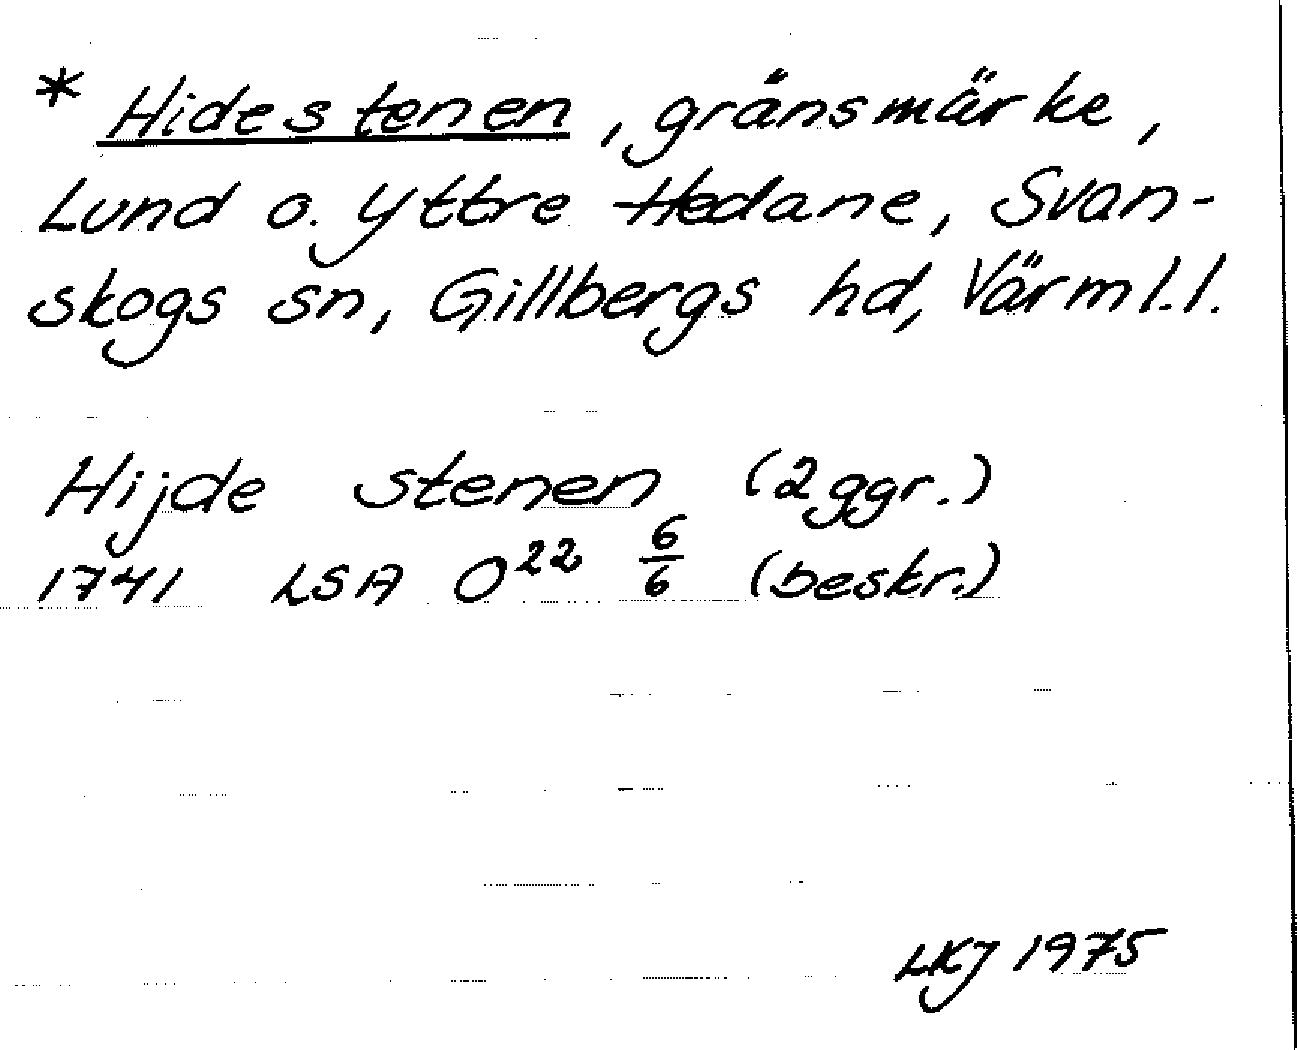 * Hidestenen, gränsmärke,
Lund o. Yttre Hedane, Svan-
skogs sn, Gillbergs hd, Värml.l.
Hijde stenen (2ggr.)
1741 LSA O²² 6/6 (beskr.)
LKJ 1975